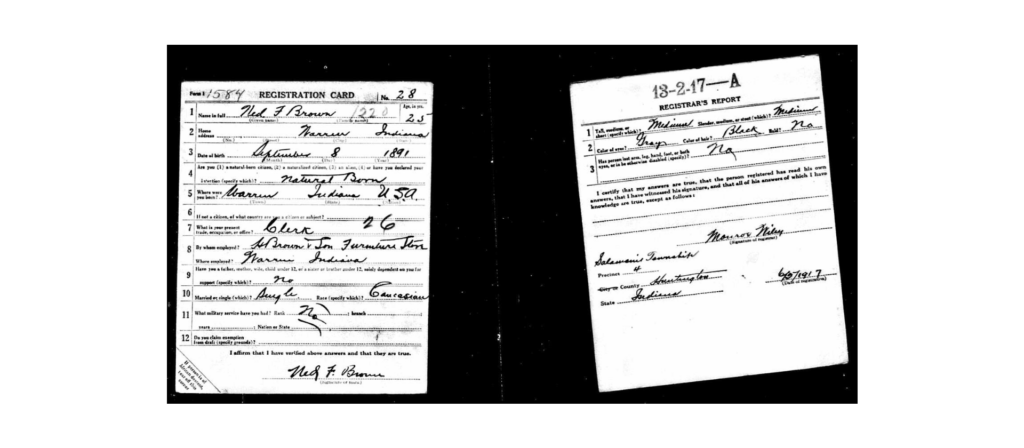 Form 1 1584 REGISTRATION CARD No. 28
1 Name in full Ned F Brown Age, in yrs. 25
2 Home address Warren Indiana
3 Date of birth September 8 1891
4 Are you (1) a natural-born citizen, (2) a naturalized citizen, (3) an alien, (4) or have you declared your
intention (specify which)? Natural Born
5 Where were you born? Warren Indiana U.S.A.
6 If not a citizen, of what country are you a citizen or subject?
7 What is your present trade, occupation, or office? Clerk 26
8 By whom employed? Brown & Son Furniture Store
Where employed? Warren Indiana
9 Have you a father, mother, wife, child under 12, or a sister or brother under 12, solely dependent on you for
support (specify which)? No
10 Married or single (which)? Single Race (specify which)? Caucasian
11 What military service have you had? Rank No ; branch
years ; Nation or State
12 Do you claim exemption from draft (specify grounds)?
I affirm that I have verified above answers and that they are true.
Ned F. Brown
(Signature or mark)
If person is of African descent, tear off this corner
13-2-17-A
REGISTRAR'S REPORT
1 Tall, medium, or short (specify which)? Medium Slender, medium, or stout (which)? Medium
2 Color of eyes? Gray Color of hair? Black Bald? No
3 Has person lost arm, leg, hand, foot, or both eyes, or is he otherwise disabled (specify)? No
I certify that my answers are true, that the person registered has read his own
answers, that I have witnessed his signature, and that all of his answers of which I have
knowledge are true, except as follows:
Monroe Wiley
(Signature of registrar)
Salamonie Township
Precinct 4
City or County Huntington
State Indiana
6/5/1917
(Date of registration)
2